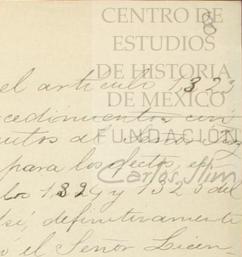 CENTRO DE
ESTUDIOS
DE HISTORIA
DE MÉXICO
FUNDACIÓN
Carlos Slim
8
el artículo 1323
para los efectos
1324 y 1325 del
definitivamente
ó el Señor Licen-